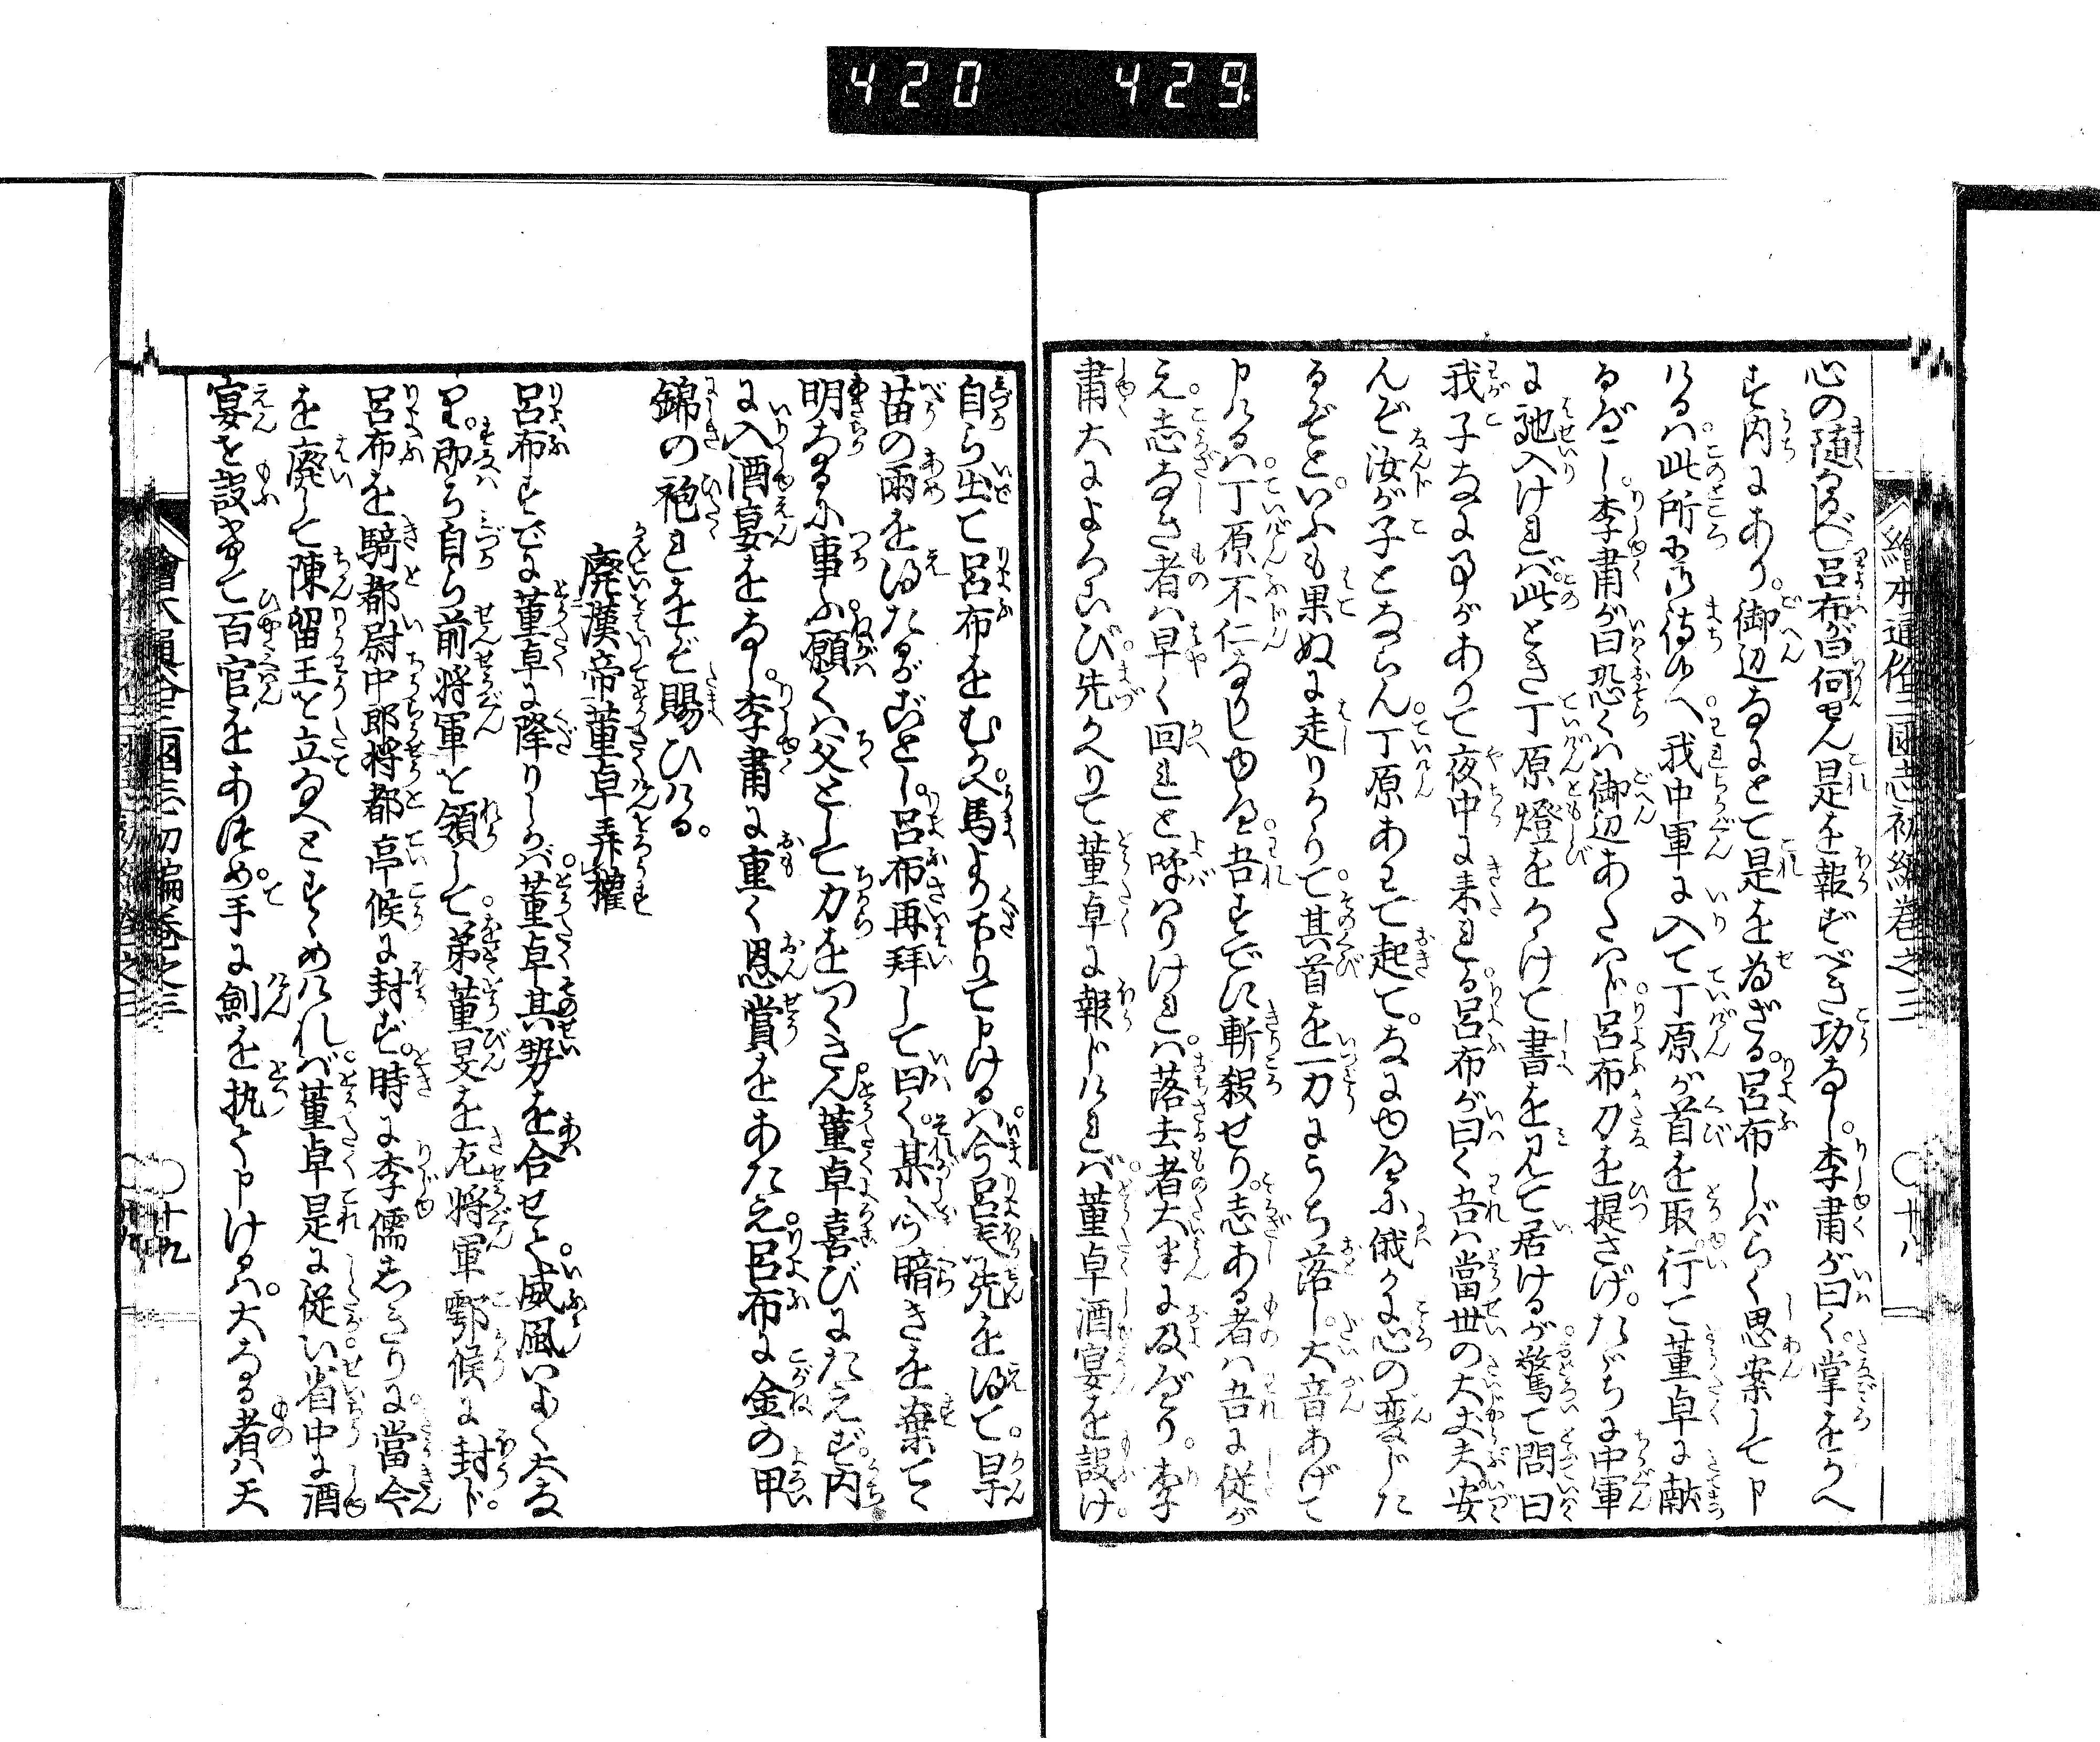 420 429
繪本通俗三國志初編巻之三 ○十八
心の随ならば呂布が曰何をせん是を報ずべき功なし。李粛が曰く。掌をかへ
す内にあり。御辺なにとて是を為ざる。呂布しばらく思案して申
ける八此所にて待ゆへ我中軍に入て丁原が首を取行て董卓に献
るべし。李粛が曰恐く八御辺あた八じ呂布刀を提さげ。たゞちに中軍
に馳入けれバ此とき丁原燈をかゝげて書を見て居けるが驚て問曰
我子なに事がありて夜中に来れる呂布が曰く吾八當世の大丈夫安
んぞ汝が子とならん丁原あ八て起て。なにゆゑに俄かに心の変じた
るぞと。いふも果ぬに走りかゝりて其首を一刀にうち落し。大音あげて
申ける八丁原不仁なりしゆゑ吾すでに斬殺せり。志ある者八吾に従が
え志なき者八早く回れと呼八りけれ八。落去者大半に及べり。李
粛大によろこび。先かへりて董卓に報じけれバ董卓酒宴を設け
自ら出て呂布をむかへ馬より下りて申ける八今呂布先を得て。旱
苗の雨を得たるがごとし。呂布再拝して曰く某今暗きを棄てゝ
明なるに事ふ願く八父として力をつくさん董卓喜びにたえず。内
に入酒宴をなし。李粛に重く恩賞をあたえ。呂布に金の甲
錦の袍まれをぞ賜ひける。
廃漢帝董卓弄權
呂布すでに董卓に降りしかバ董卓其勢を合せて。威風いよ〱大な
り。即ち自ら前将軍を領して弟董旻を左将軍鄠候に封ド。
呂布を騎都尉中郎将都亭候に封ず。時に李儒しきりに當今
を廃して陳留王を立たまへとすゝめけれバ董卓是に従い省中に酒
宴を設させて百官をあつめ。手に劍を執て申ける八。大なる者八天
繪本通俗三國志初編巻之三 ○十九